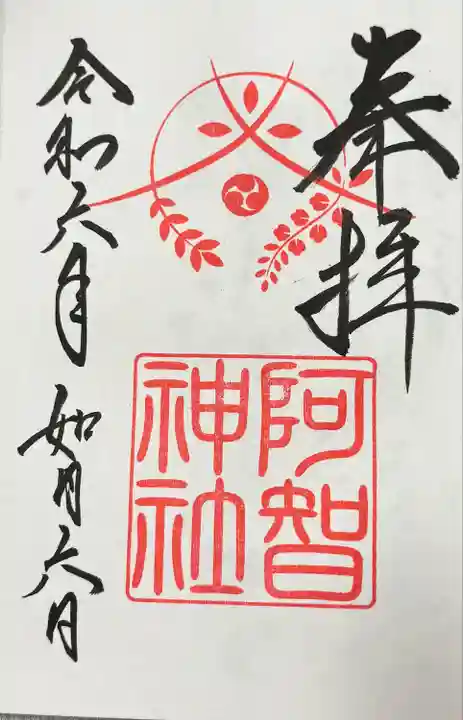 奉拝
阿智
神社
令和六年
如月六日